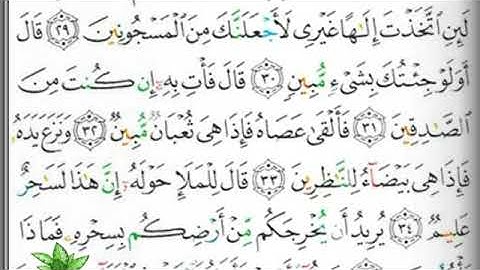 لَئِنِ ٱتَّخَذْتَ إِلَٰهًا غَيْرِى لَأَجْعَلَنَّكَ مِنَ ٱلْمَسْجُونِينَ ٢٩ قَالَ
أَوَلَوْ جِئْتُكَ بِشَىْءٍ مُّبِينٍ ٣٠ قَالَ فَأْتِ بِهِۦٓ إِن كُنتَ مِنَ
ٱلصَّٰدِقِينَ ٣١ فَأَلْقَىٰ عَصَاهُ فَإِذَا هِىَ ثُعْبَانٌ مُّبِينٌ ٣٢ وَنَزَعَ يَدَهُۥ
فَإِذَا هِىَ بَيْضَآءُ لِلنَّٰظِرِينَ ٣٣ قَالَ لِلْمَلَإِ حَوْلَهُۥٓ إِنَّ هَٰذَا لَسَٰحِرٌ
عَلِيمٌ ٣٤ يُرِيدُ أَن يُخْرِجَكُم مِّنْ أَرْضِكُم بِسِحْرِهِۦ فَمَاذَا